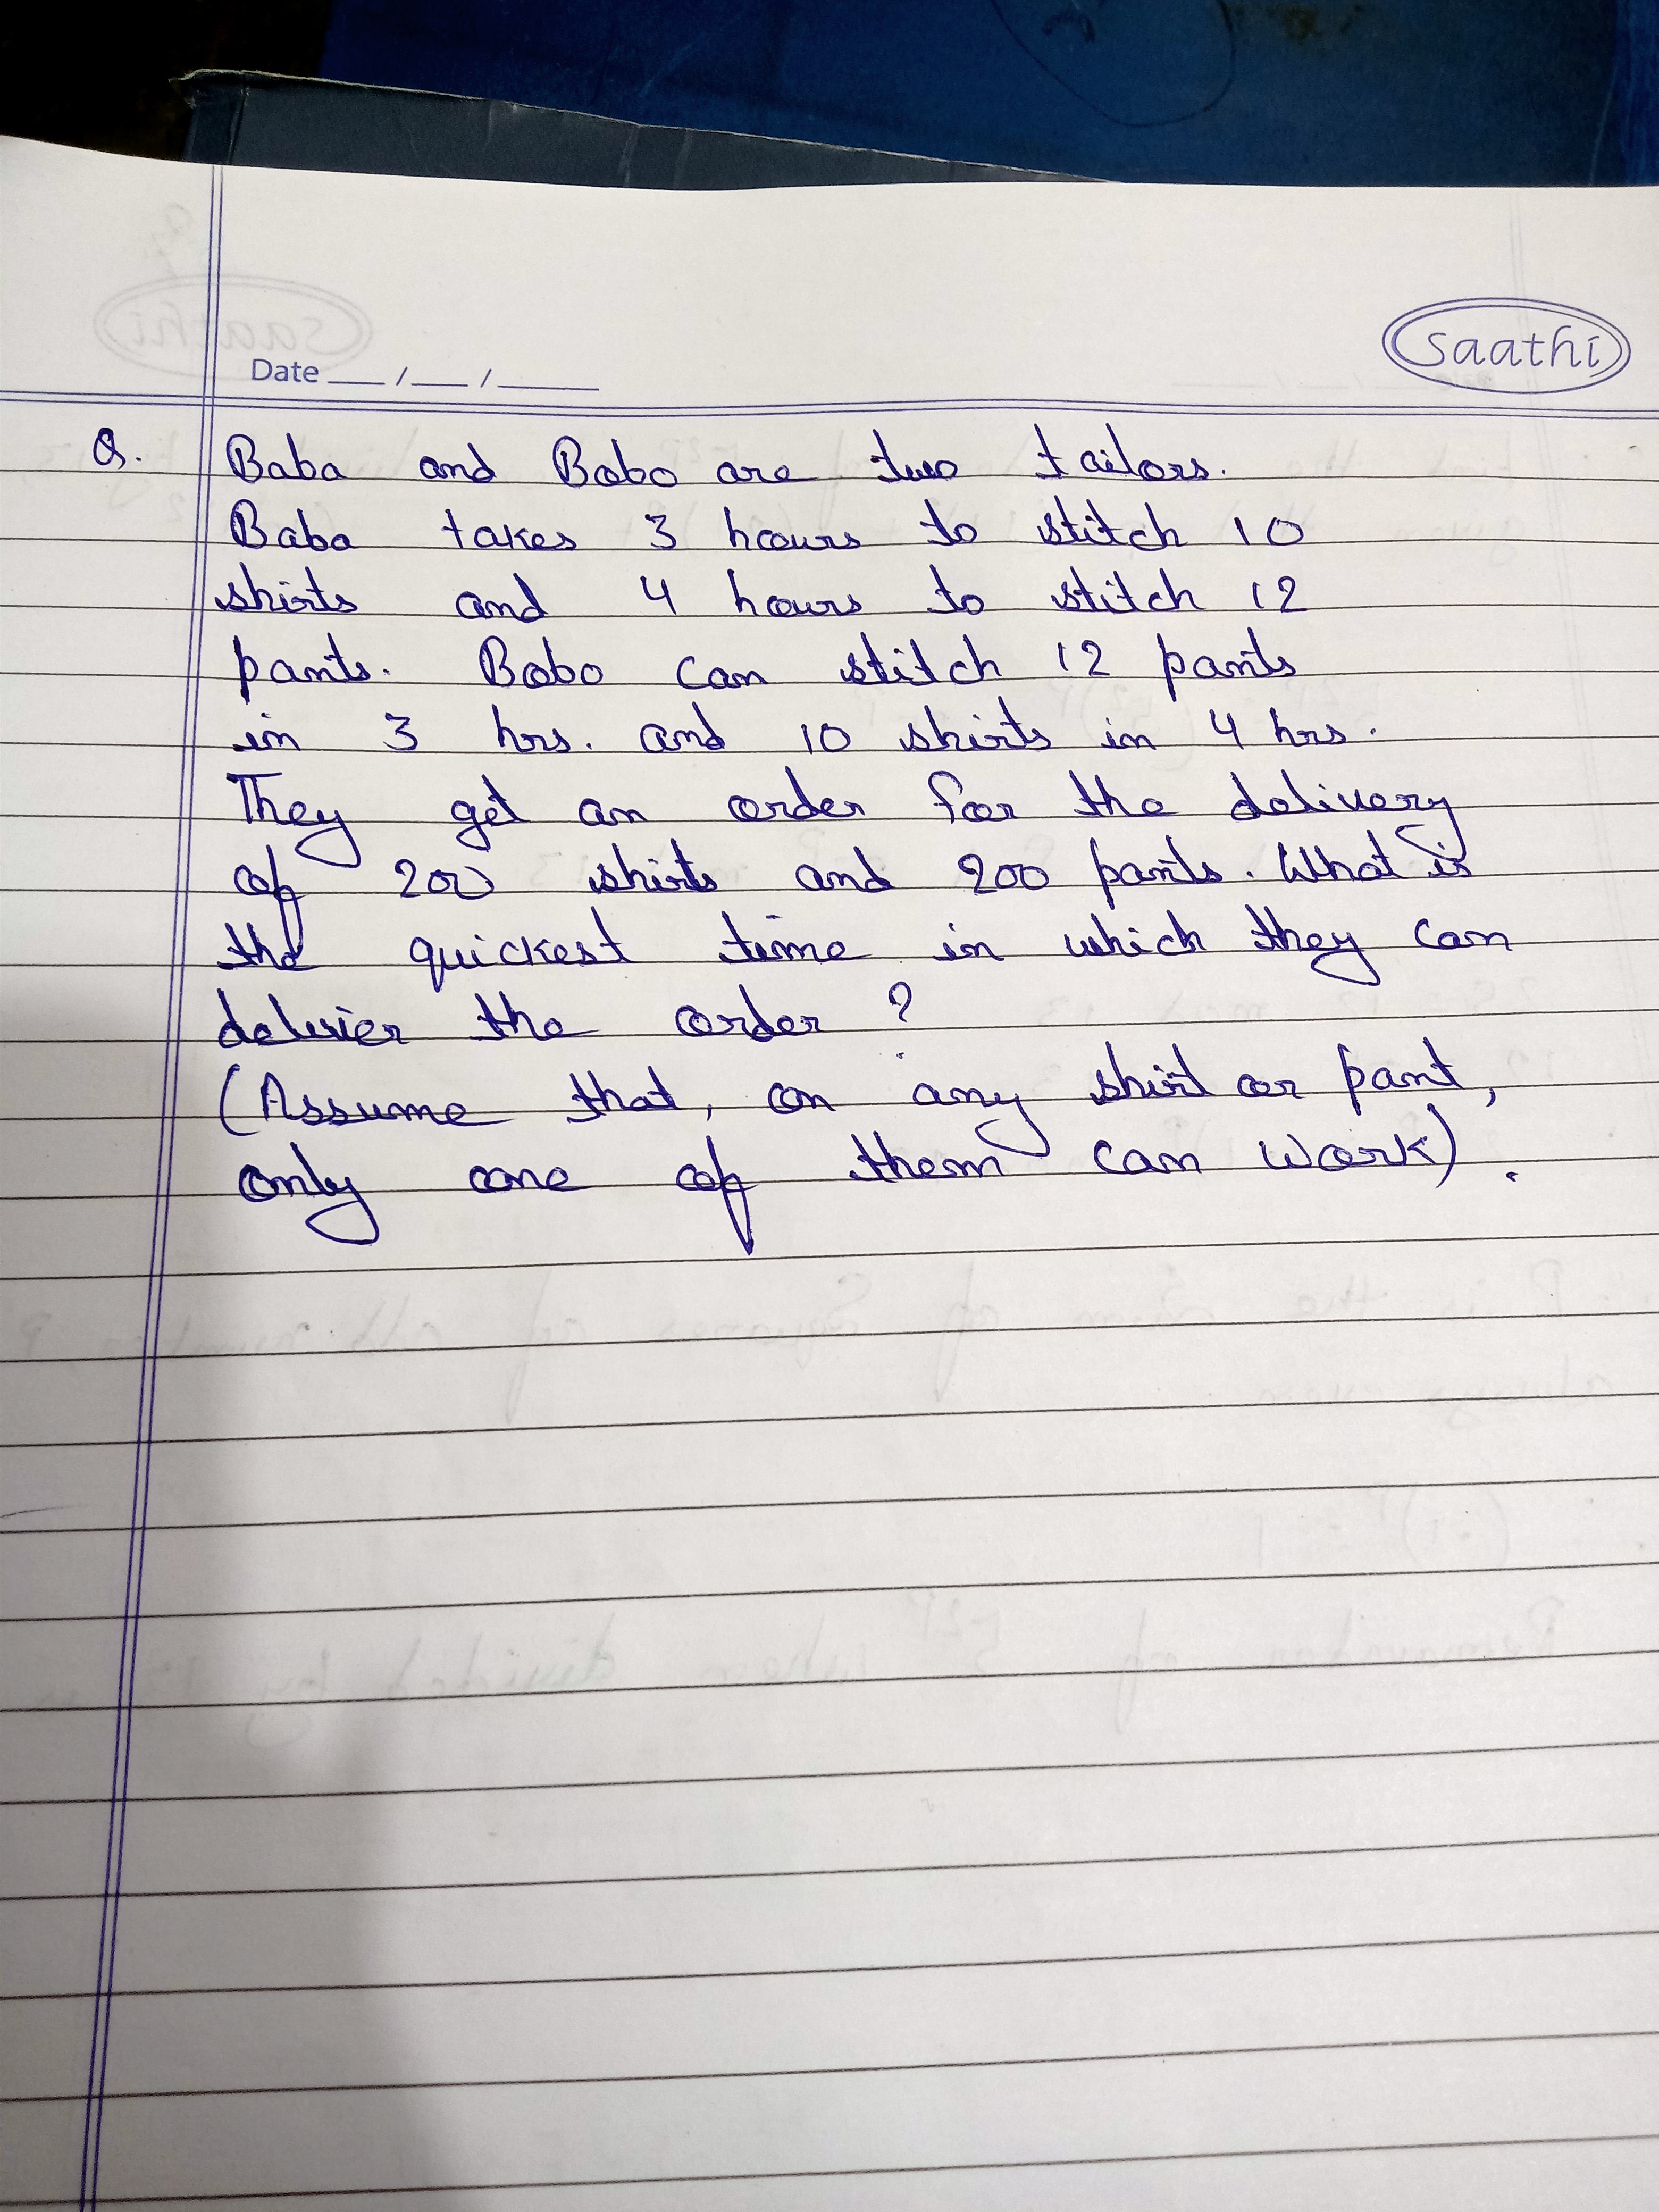 saathi
Date ___/___/_____
Q. Baba and Bobo are two tailors.
Baba takes 3 hours to stitch 10
shirts and 4 hours to stitch 12
pants. Bobo can stitch 12 pants
in 3 hrs. and 10 shirts in 4 hrs.
They get an order for the delivery
of 200 shirts and 200 pants. What is
the quickest time in which they can
delivier the order?
(Assume that, on any shirt or pant,
only one of them can work).